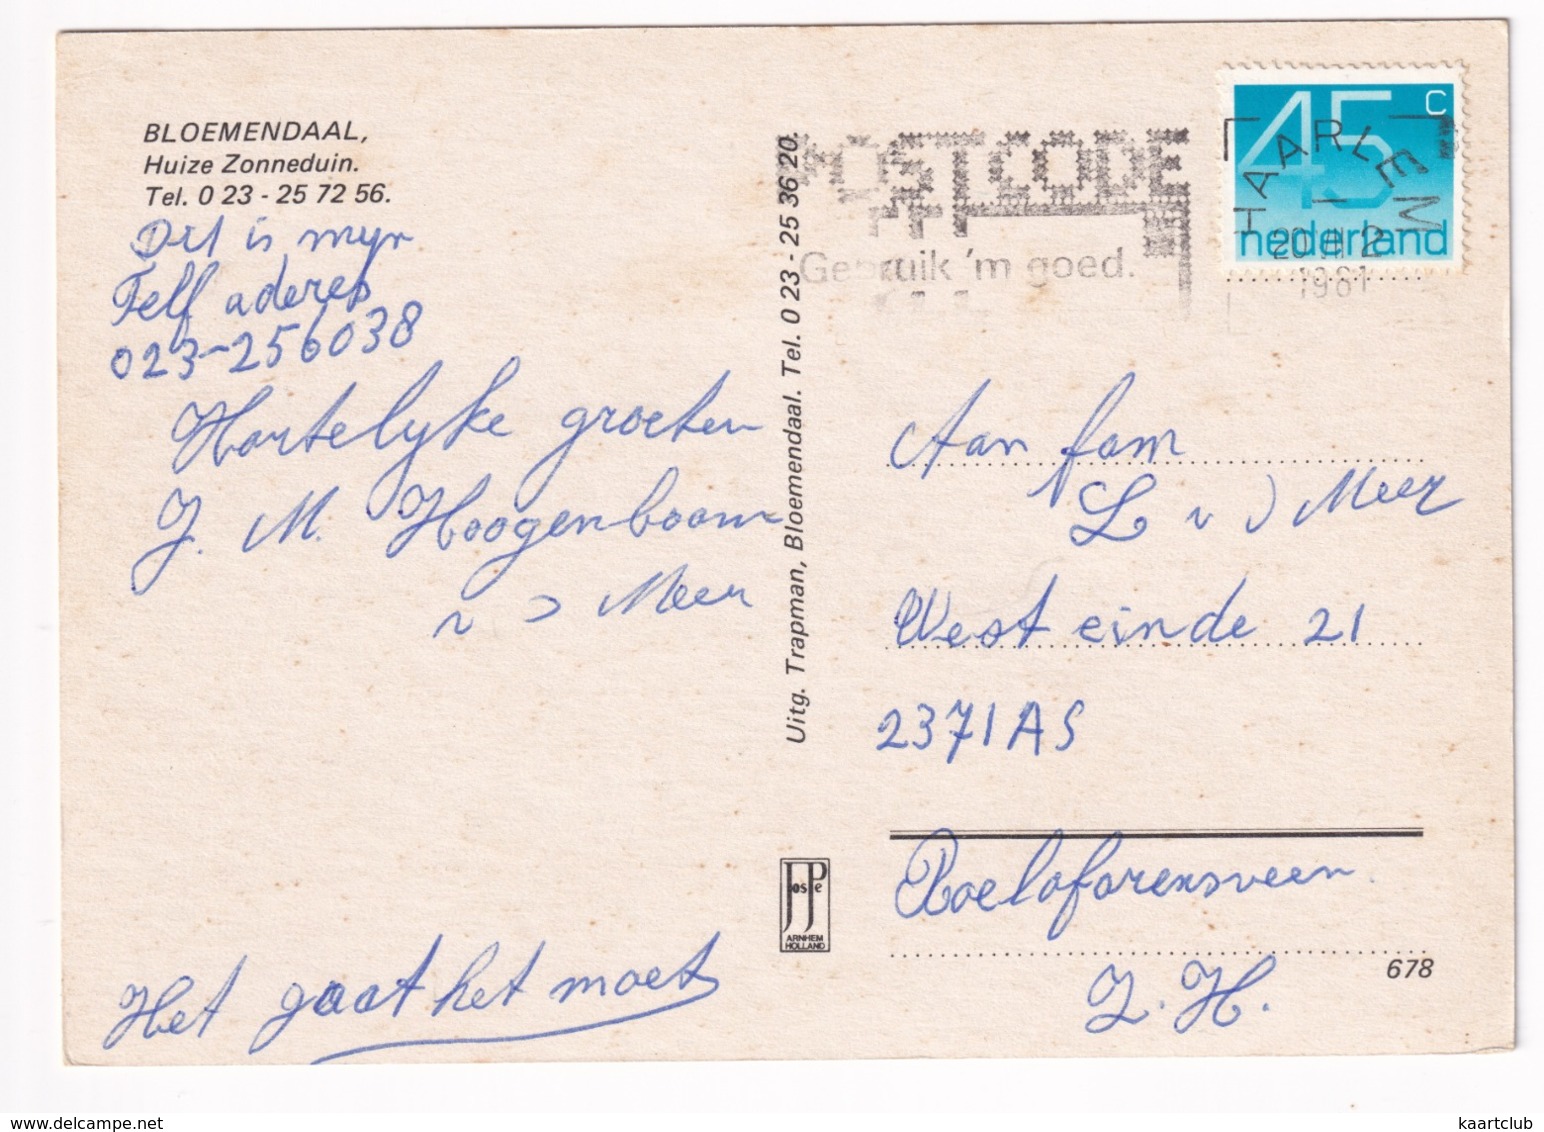 BLOEMENDAAL,
Huize Zonneduin.
Tel. 0 23 - 25 72 56.
Dit is myn
Telf aderes
023-256038
Hartelyke groeten
J. M. Hoogenboom
v d Meer
Het gaat het moet
Uitg. Trapman, Bloemendaal. Tel. 0 23 - 25 36 20.
POSTCODE
Gebruik 'm goed.
45 c
nederland
HAARLEM
20 VII 2
1981
Aan fam
L v d Meer
West einde 21
2371AS
Roelofarensveen.
Z. H.
JosPe
ARNHEM
HOLLAND
678
www.delcampe.net
kaartclub